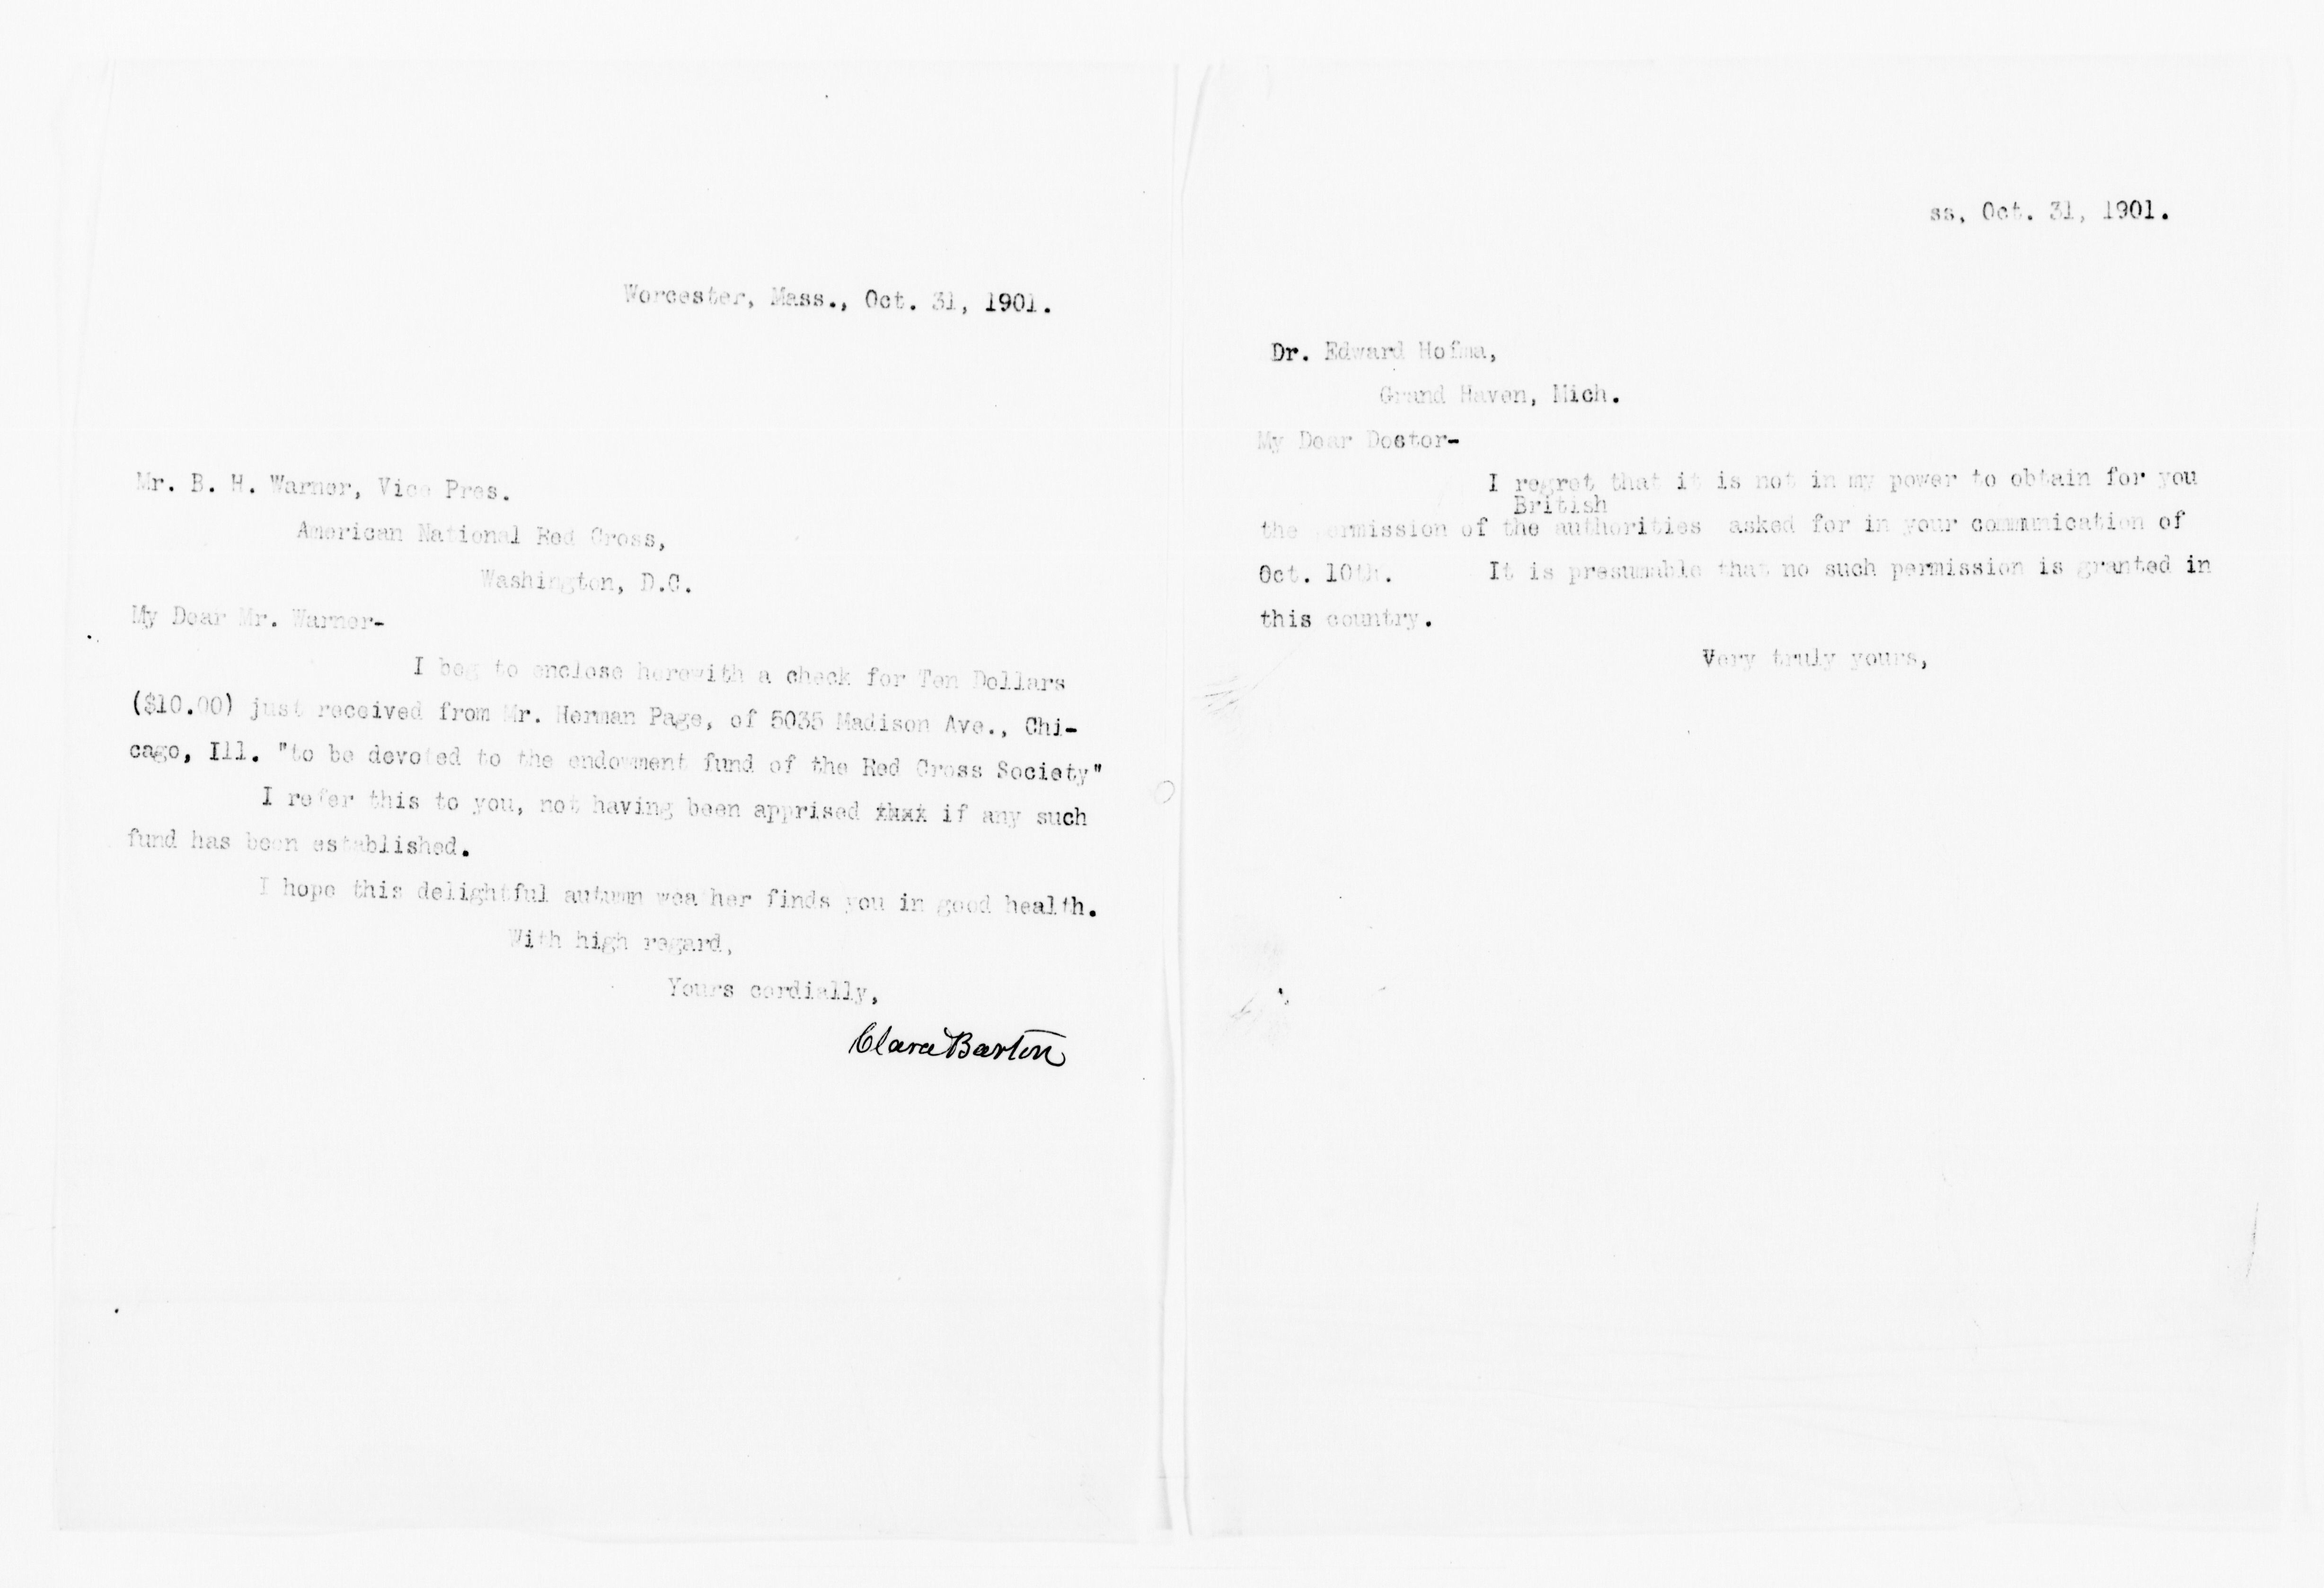 Worcester, Mass., Oct. 31, 1901.
Mr. B. H. Warner, Vice Pres.
American National Red Cross,
Washington, D.C.
My Dear Mr. Warner-
I beg to enclose herewith a check for Ten Dollars
($10.00) just received from Mr. Herman Page, of 5035 Madison Ave., Chi-
cago, Ill. "to be devoted to the endowment fund of the Red Cross Society"
I refer this to you, not having been apprised that if any such
fund has been established.
I hope this delightful autumn weather finds you in good health.
With high regard,
Yours cordially,
Clara Barton
ss, Oct. 31, 1901.
Dr. Edward Hofma,
Grand Haven, Mich.
My Dear Doctor-
I regret that it is not in my power to obtain for you
British
the permission of the authorities asked for in your communication of
Oct. 10th. It is presumable that no such permission is granted in
this country.
Very truly yours,